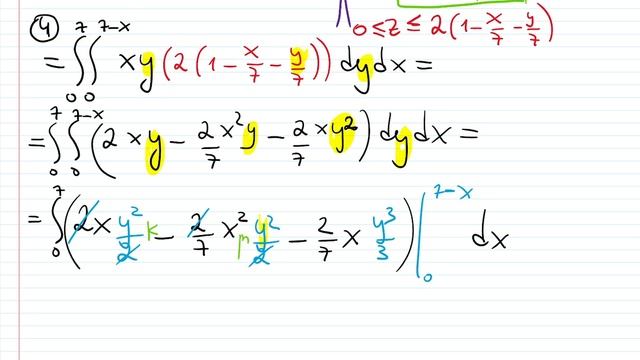 0 ≤ z ≤ 2(1 - x/7 - y/7)
④
= ∫₀⁷ ∫₀⁷⁻ˣ xy(2(1 - x/7 - y/7)) dy dx =
= ∫₀⁷ ∫₀⁷⁻ˣ (2xy - 2/7 x²y - 2/7 xy²) dy dx =
= ∫₀⁷ (2x y²/2 - 2/7 x² y²/2 - 2/7 x y³/3) |₀⁷⁻ˣ dx